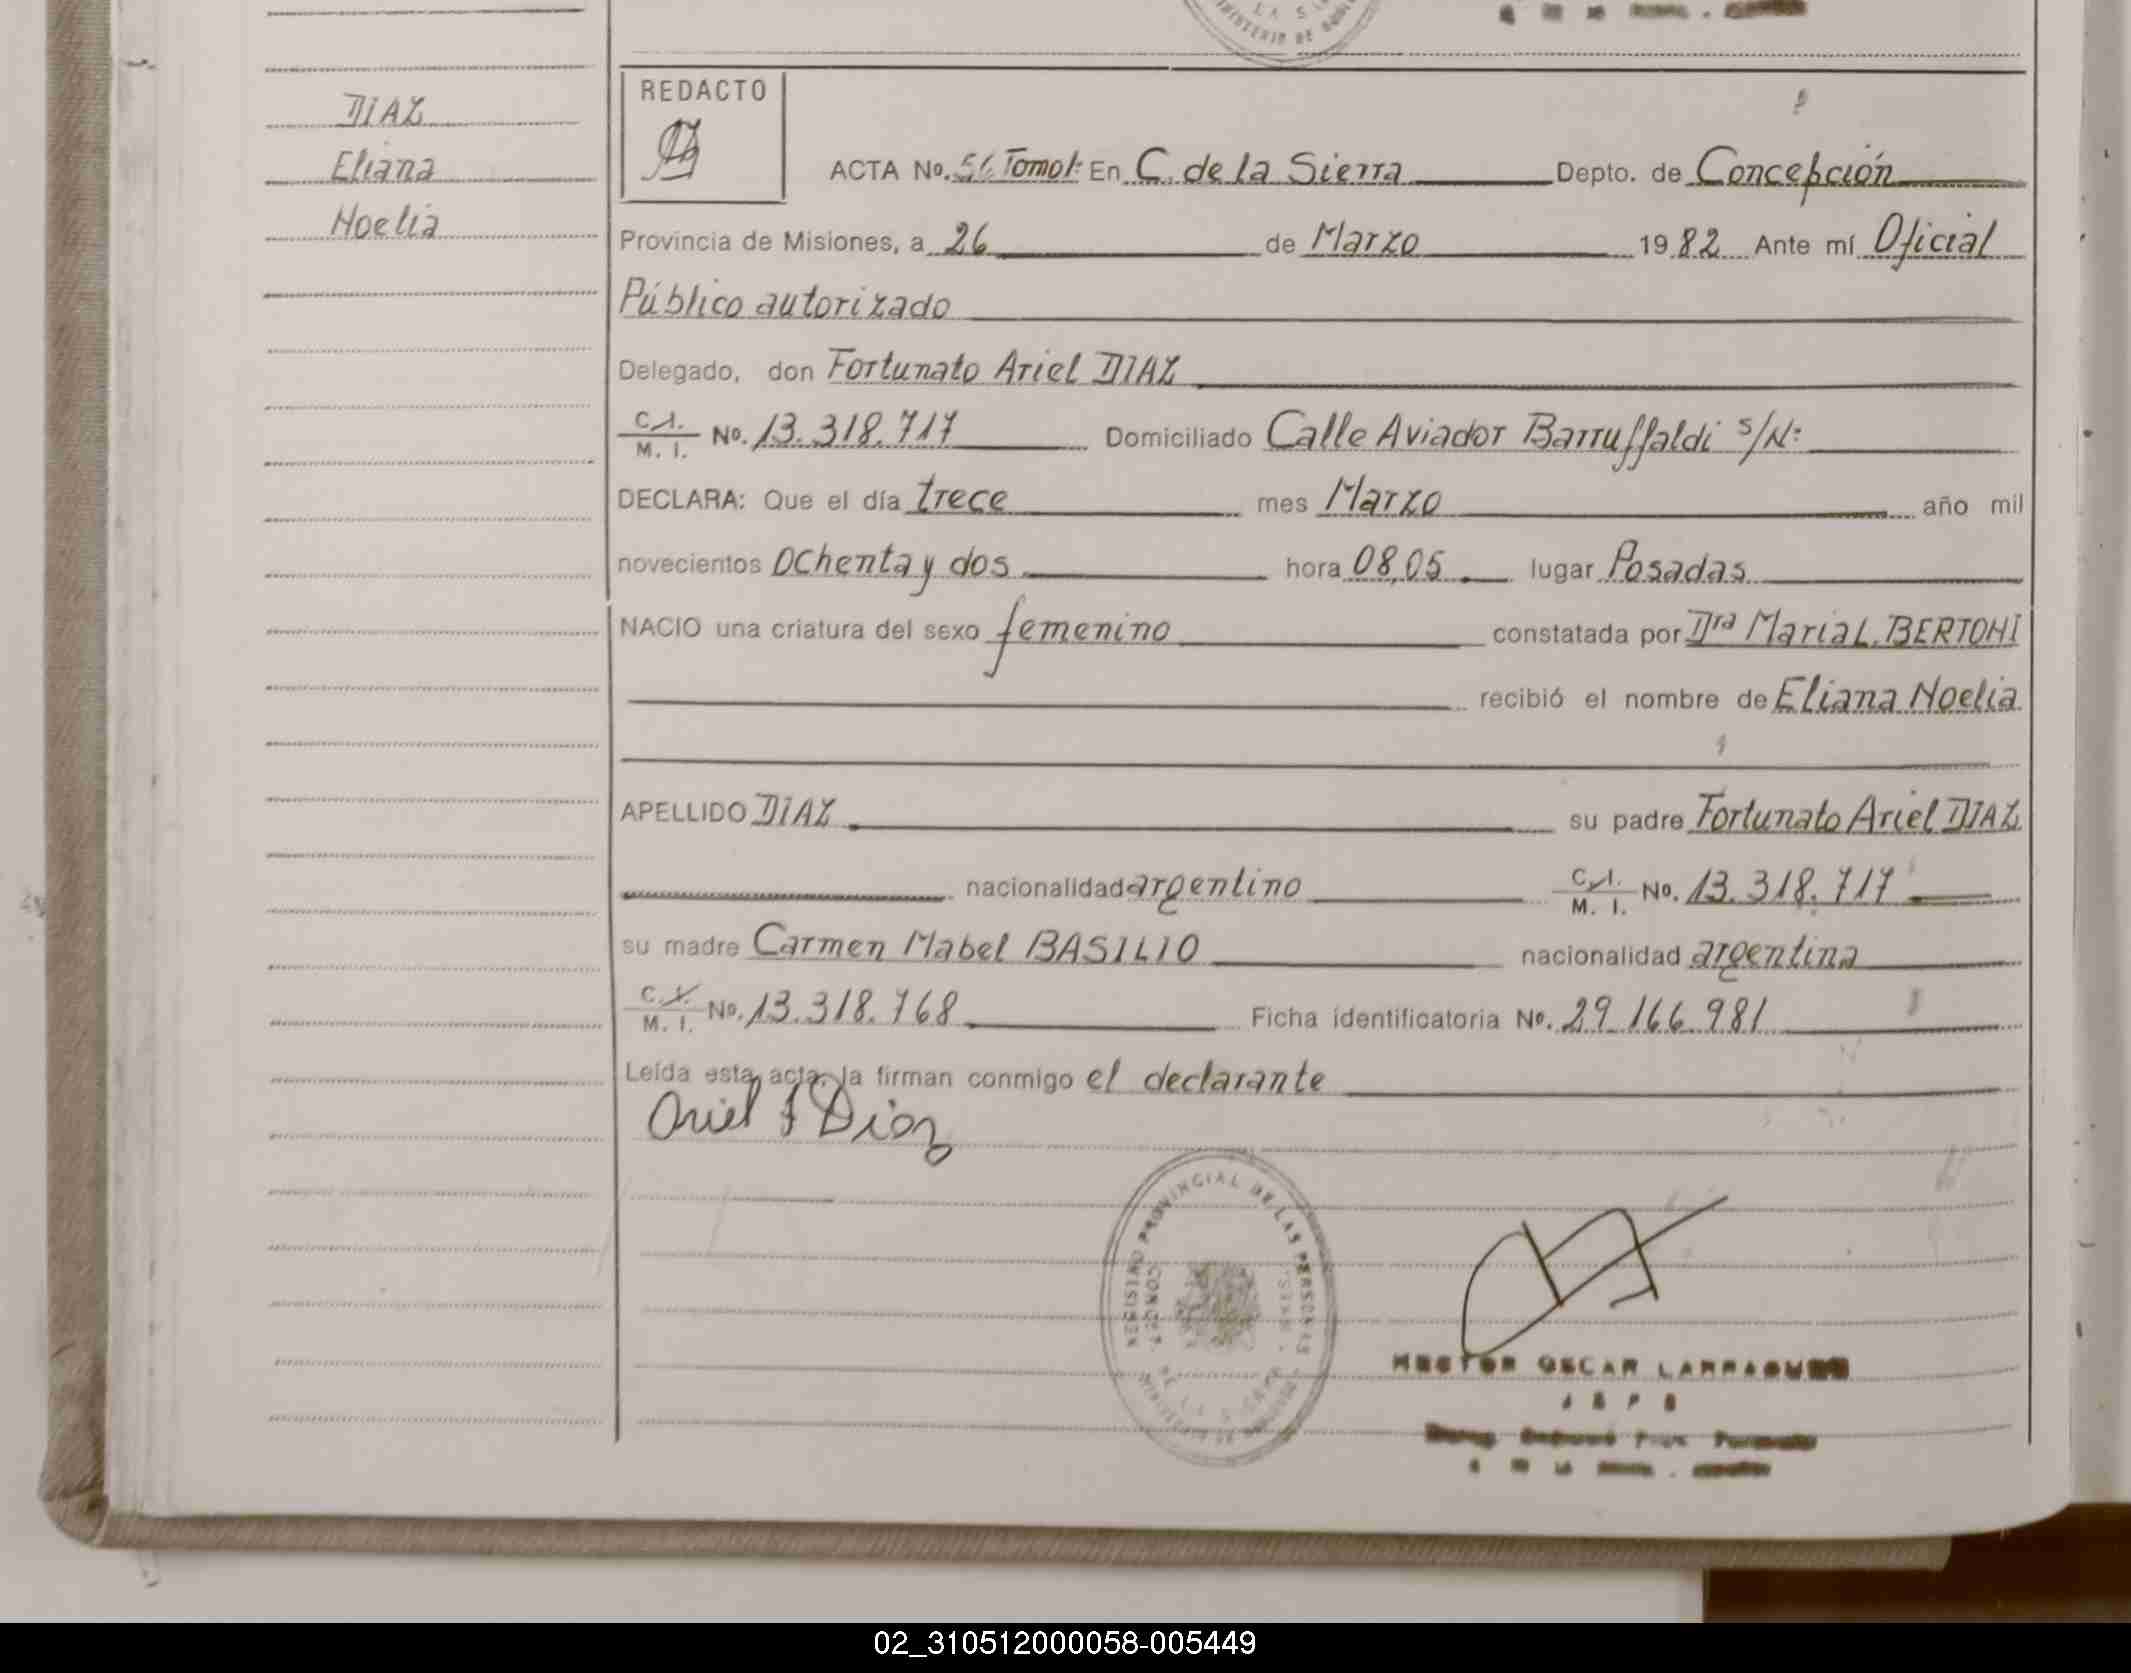 DIAZ
Eliana
Noelia
REDACTO
ACTA No. 56 Tomo I: En C. de la Sierra Depto. de Concepción
Provincia de Misiones, a 26 de Marzo 1982 Ante mí Oficial
Público autorizado
Delegado, don Fortunato Ariel DIAZ
C.I. M. I. No. 13.318.717 Domiciliado Calle Aviador Barruffaldi S/N:
DECLARA: Que el día trece mes Marzo año mil
novecientos Ochenta y dos hora 08,05 lugar Posadas
NACIO una criatura del sexo femenino constatada por Dra Maria L. BERTONI
recibió el nombre de Eliana Noelia
APELLIDO DIAZ su padre Fortunato Ariel DIAZ
nacionalidad argentino C.I. M. I. No. 13.318.717
su madre Carmen Mabel BASILIO nacionalidad argentina
C.I. M. I. No. 13.318.768 Ficha identificatoria No. 29.166.981
Leída esta acta, la firman conmigo el declarante
Ariel f Diaz
REGISTRO PROVINCIAL DE LAS PERSONAS
HECTOR OSCAR LARRAQUE
JEFE
02_310512000058-005449